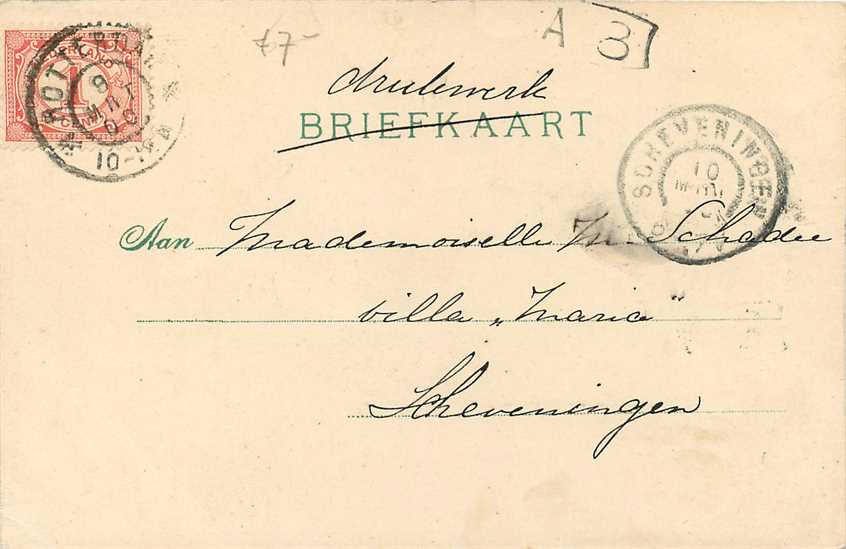 £7-
A 3
drukwerk
BRIEFKAART
NEDERLAND
1
CENT
ROTTERDAM
SCHEVENINGEN
10
Aan Mademoiselle M. Schadee
villa „Maria"
Scheveningen